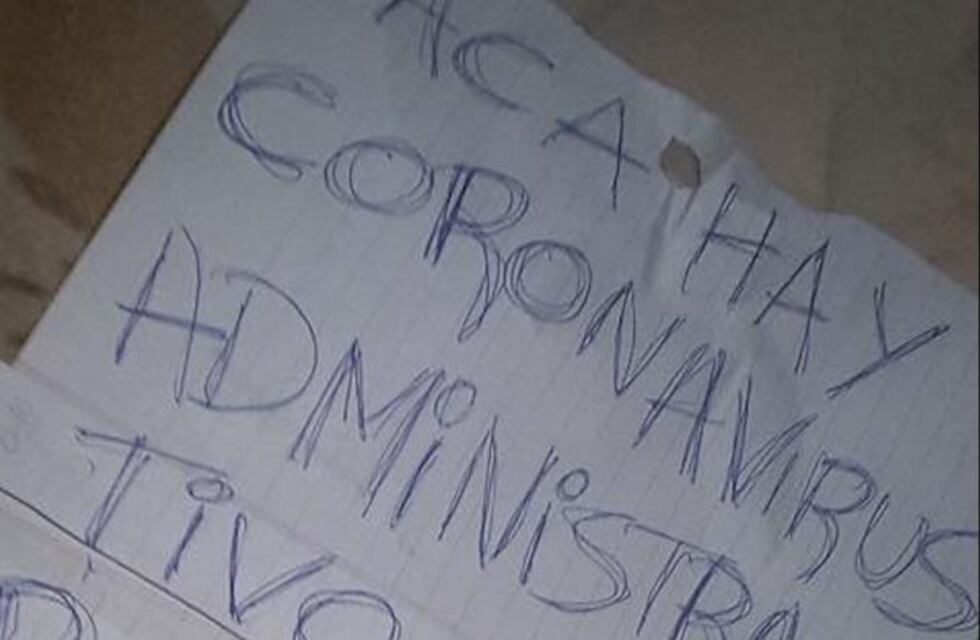 ACA HAY
CORONAVIRUS
ADMiNiSTRA
TiVO